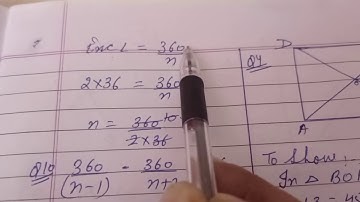 Enc∠ = 360/n
2×36 = 360/n
n = 360 10/2×36
Q10 360/(n-1) - 360/n+
Q4
D
A
To Show:
In Δ BO